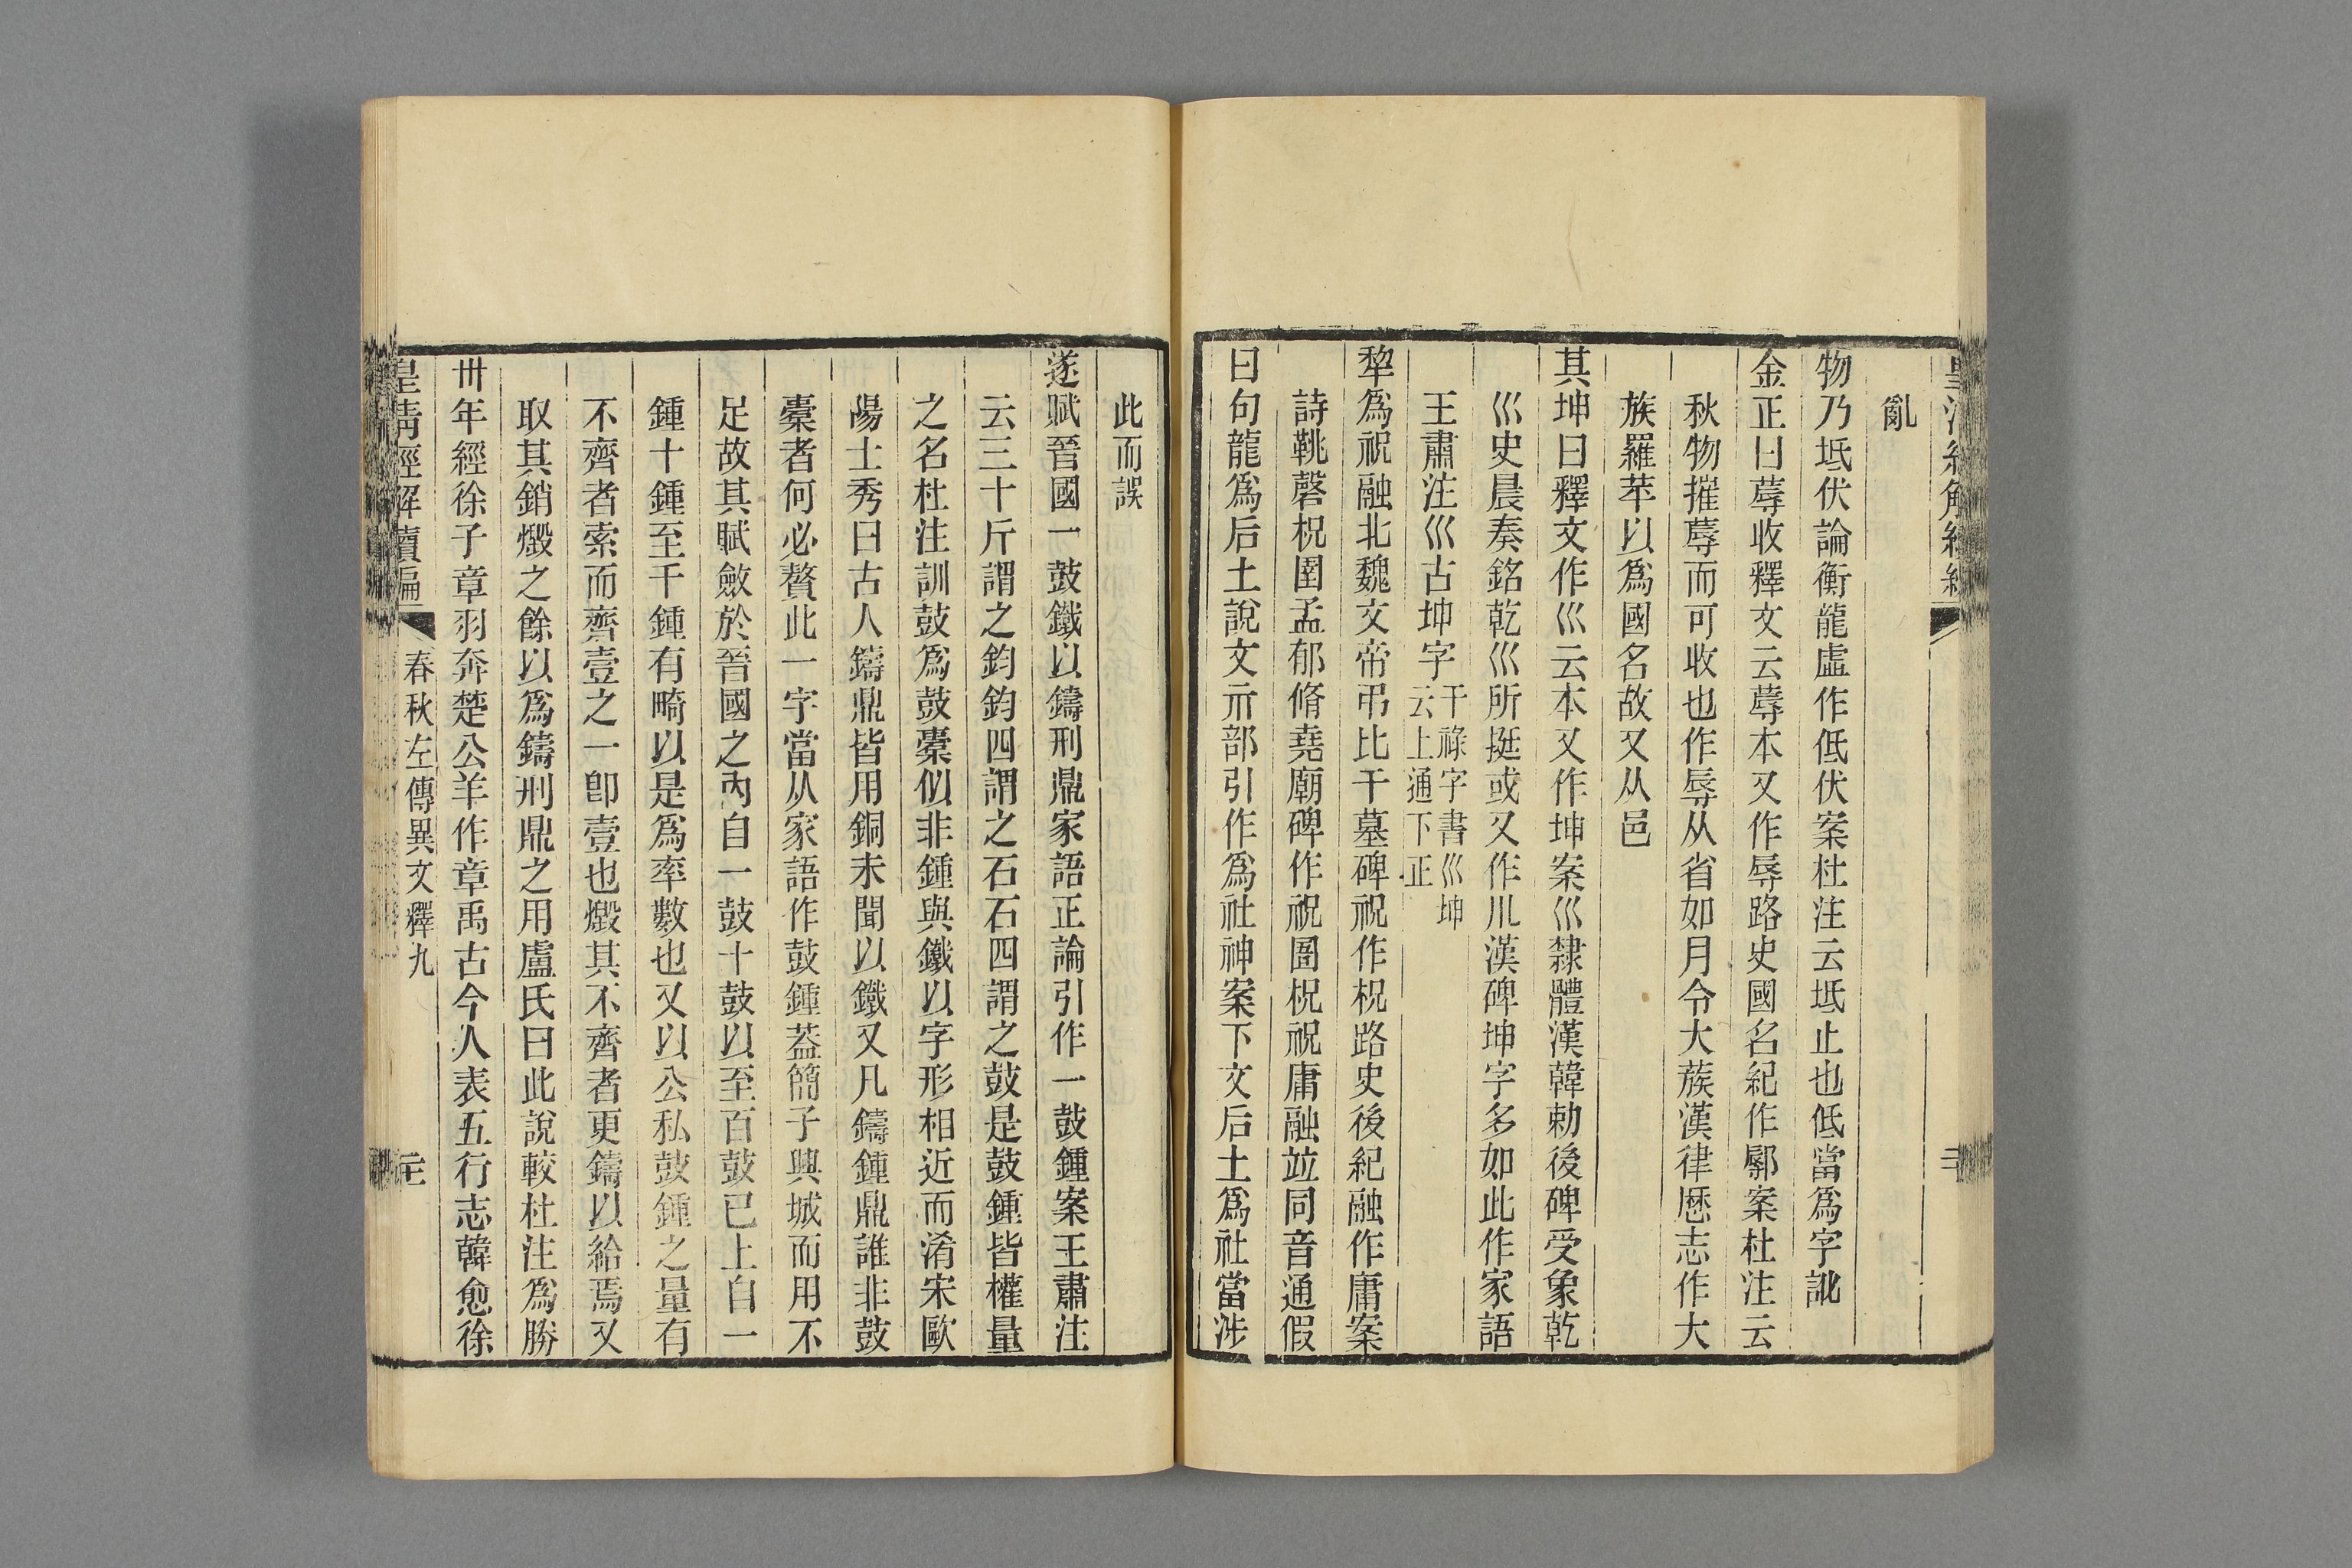 亂
物乃坻伏論衡龍虛作低伏案杜注云坻止也低當爲字訛
金正曰蓐收釋文云蓐本又作辱路史國名紀作鄏案杜注云
秋物摧蓐而可收也作辱从省如月令大蔟漢律厯志作大
族羅苹以爲國名故又从邑
其坤曰釋文作巛云本又作坤案巛隸體漢韓勅後碑受象乾
巛史晨奏銘乾巛所挺或又作儿漢碑坤字多如此作家語
王肅注巛古坤字干祿字書巛坤云上通下正
犂爲祝融北魏文帝弔比干墓碑祝作柷路史後紀融作庸案
詩鞉磬柷圉孟郁脩堯廟碑作祝圄柷祝庸融竝同音通假
曰句龍爲后土說文示部引作爲社神案下文后土爲社當涉
此而誤
遂賦晉國一鼓鐵以鑄刑鼎家語正論引作一鼓鍾案王肅注
云三十斤謂之鈞鈞四謂之石石四謂之鼓是鼓鍾皆權量
之名杜注訓鼓爲鼓橐似非鍾與鐵以字形相近而淆宋歐
陽士秀曰古人鑄鼎皆用銅未聞以鐵又凡鑄鍾鼎誰非鼓
橐者何必贅此一字當从家語作鼓鍾葢簡子興城而用不
足故其賦斂於晉國之內自一鼓十鼓以至百鼓已上自一
鍾十鍾至千鍾有畸以是爲率數也又以公私鼓鍾之量有
不齊者索而齊壹之一卽壹也燬其不齊者更鑄以給焉又
取其銷燬之餘以爲鑄刑鼎之用盧氏曰此說較杜注爲勝
卅年經徐子章羽奔楚公羊作章禹古今人表五行志韓愈徐
皇淸經解續編
春秋左傳異文釋九